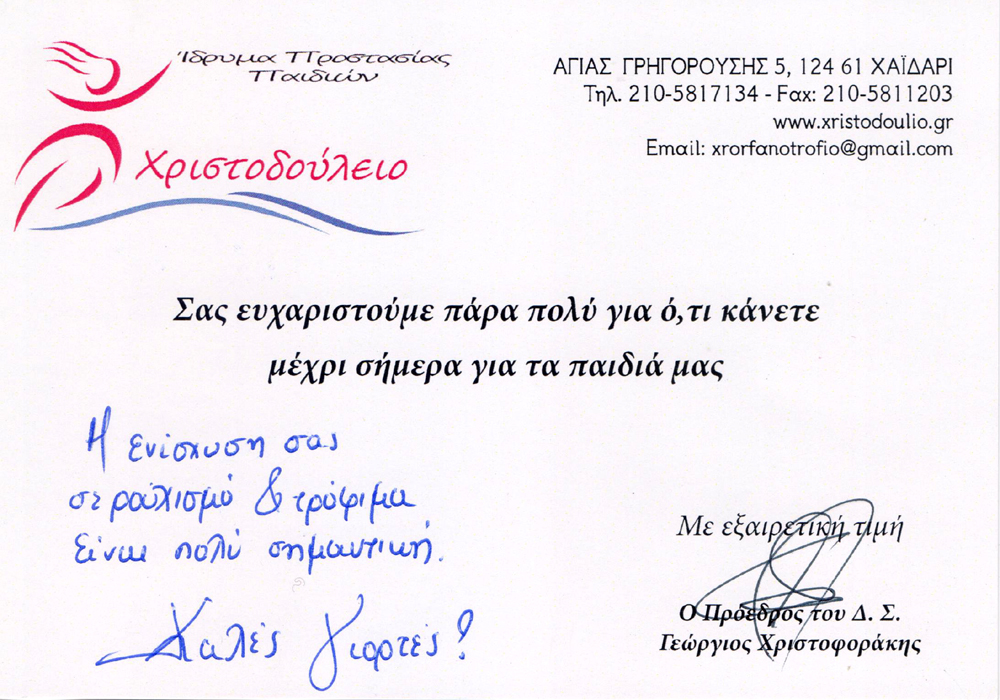 Ίδρυμα Προστασίας
Παιδιών
Χριστοδούλειο
ΑΓΙΑΣ ΓΡΗΓΟΡΟΥΣΗΣ 5, 124 61 ΧΑΪΔΑΡΙ
Τηλ. 210-5817134 - Fax: 210-5811203
www.xristodoulio.gr
Email: xrorfanotrofio@gmail.com
Σας ευχαριστούμε πάρα πολύ για ό,τι κάνετε
μέχρι σήμερα για τα παιδιά μας
Η ενίσχυση σας
σε ρουχισμό & τρόφιμα
είναι πολύ σημαντική.
Καλές γιορτές!
Με εξαιρετική τιμή
Ο Πρόεδρος του Δ. Σ.
Γεώργιος Χριστοφοράκης